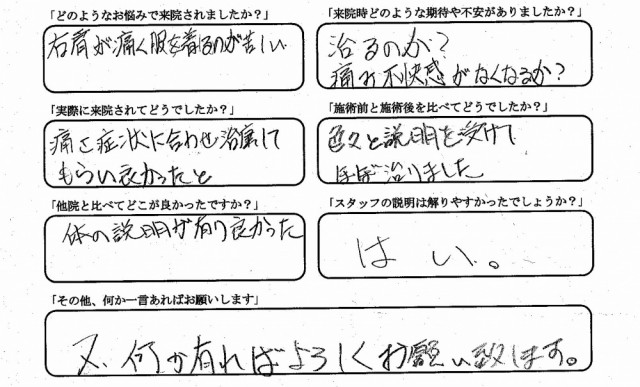 「どのようなお悩みで来院されましたか？」
右肩が痛く服を着るのが苦しい
「来院時どのような期待や不安がありましたか？」
治るのか？
痛み不快感がなくなるか？
「実際に来院されてどうでしたか？」
痛さ症状に合わせ治療して
もらい良かったと
「施術前と施術後を比べてどうでしたか？」
色々と説明を受けて
ほぼ治りました
「他院と比べてどこが良かったですか？」
体の説明が有り良かった
「スタッフの説明は解りやすかったでしょうか？」
はい。
「その他、何か一言あればお願いします」
又、何か有ればよろしくお願い致します。